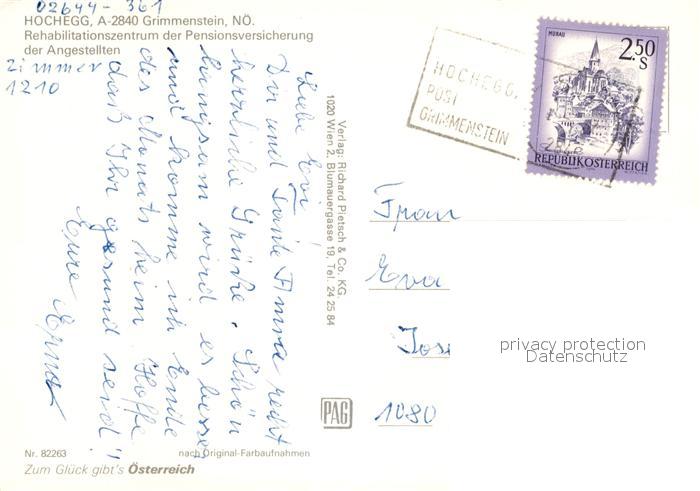 02644 - 361
HOCHEGG, A-2840 Grimmenstein, NÖ.
Rehabilitationszentrum der Pensionsversicherung
der Angestellten
Zimmer
1210
Liebe Evi!
Dir und Tante Anna recht
herzliche Grüße. Schön
langsam wird es besser
und komme ich Ende
des Monats heim. Hoffe
daß Ihr gesund seid!
Eure Erna
Verlag: Richard Pietsch & Co. KG.
1020 Wien 2, Blumauergasse 19, Tel. 24 25 84
HOCHEGG,
POST
GRIMMENSTEIN
MURAU
2.50
S
REPUBLIK ÖSTERREICH
Frau
Eva
1080
privacy protection
Datenschutz
PAG
Nr. 82263
nach Original-Farbaufnahmen
Zum Glück gibt's Österreich